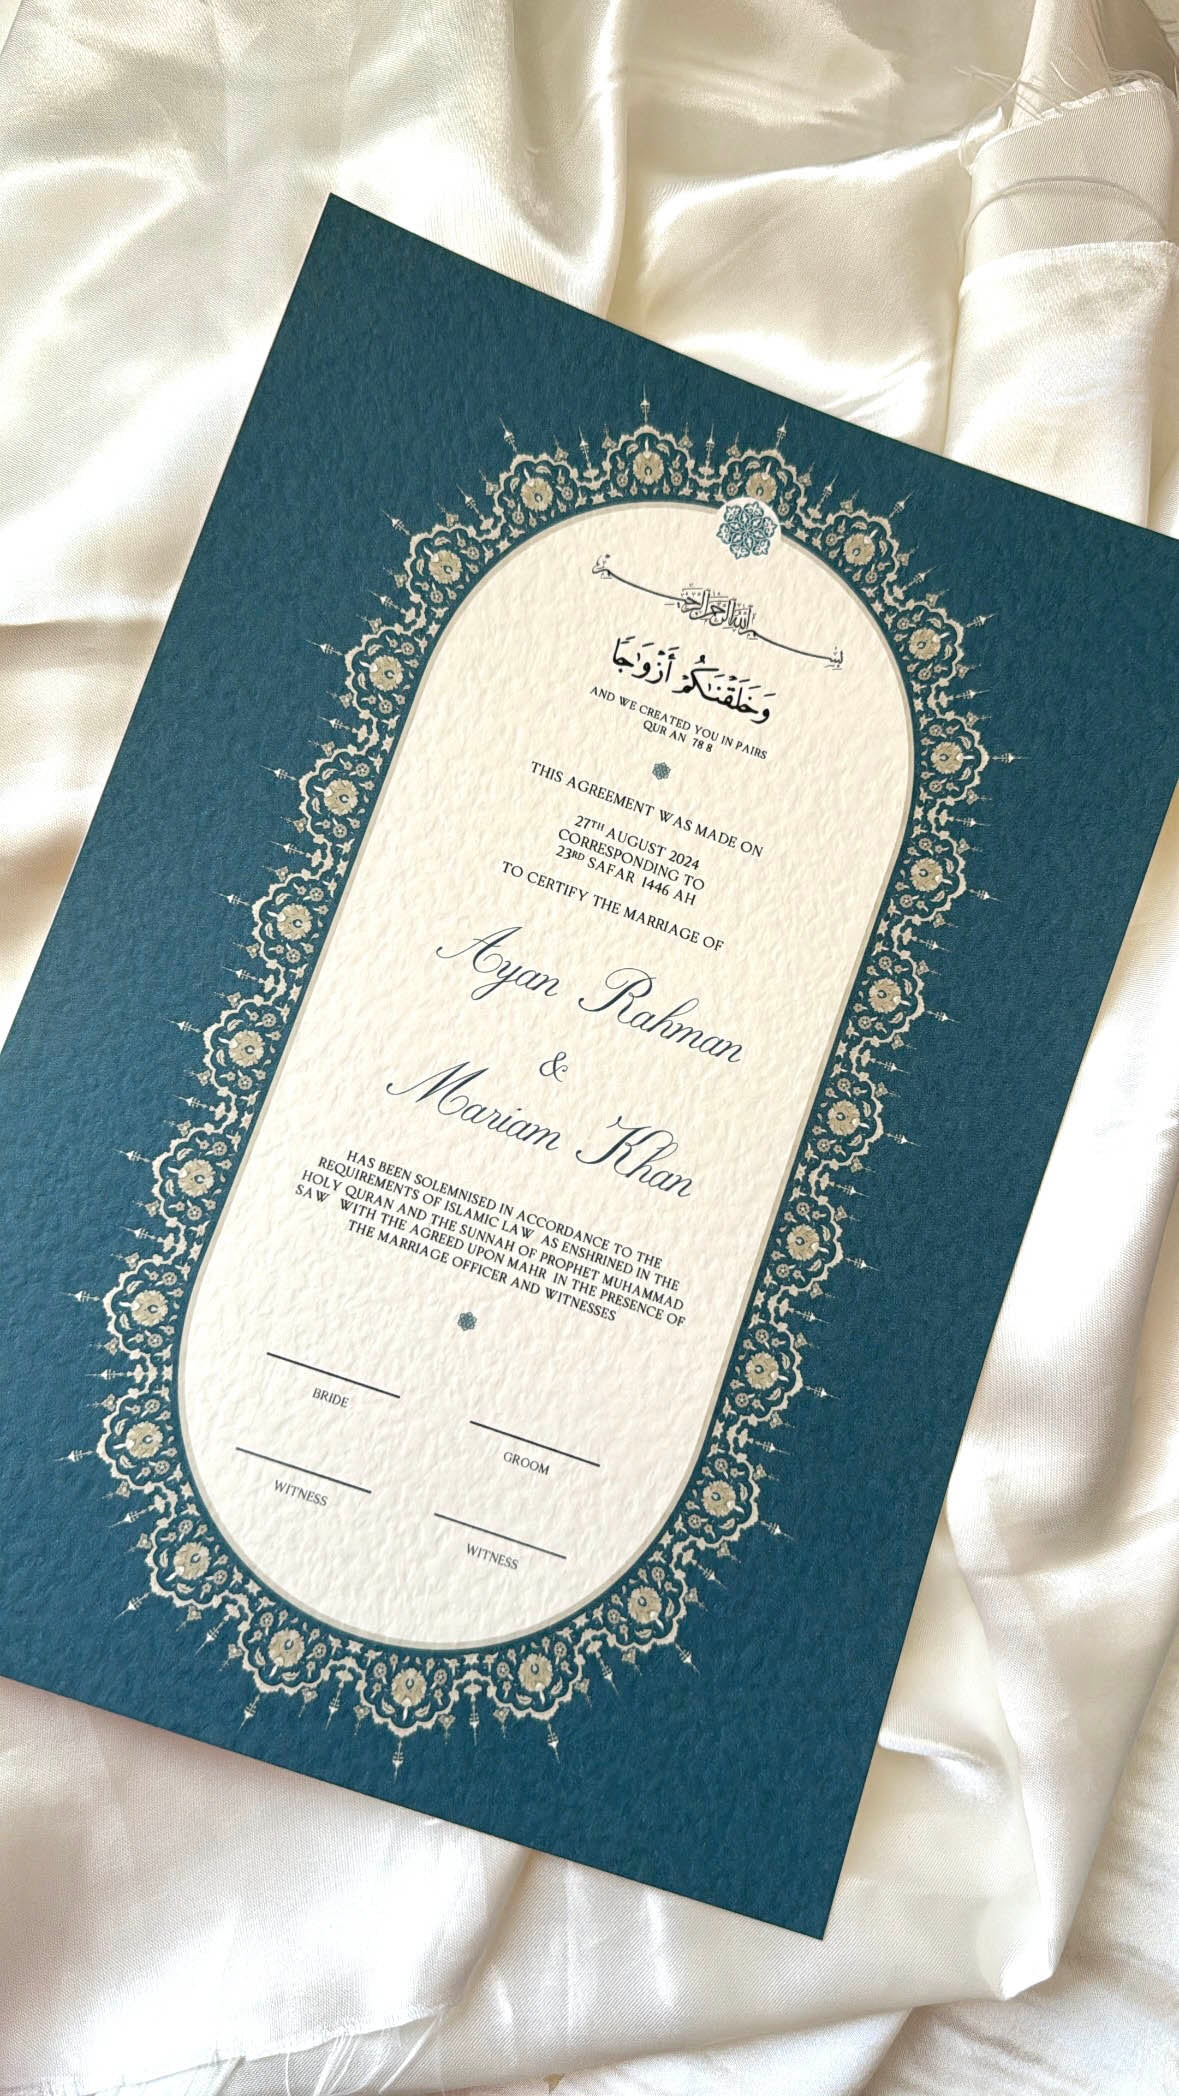 بسم الله الرحمن الرحيم
وَخَلَقْنَاكُمْ أَزْوَاجًا
AND WE CREATED YOU IN PAIRS
QUR AN 78 8
THIS AGREEMENT WAS MADE ON
27TH AUGUST 2024
CORRESPONDING TO
23RD SAFAR 1446 AH
TO CERTIFY THE MARRIAGE OF
Ayan Rahman
&
Mariam Khan
HAS BEEN SOLEMNISED IN ACCORDANCE TO THE
REQUIREMENTS OF ISLAMIC LAW AS ENSHRINED IN THE
HOLY QURAN AND THE SUNNAH OF PROPHET MUHAMMAD
SAW WITH THE AGREED UPON MAHR IN THE PRESENCE OF
THE MARRIAGE OFFICER AND WITNESSES
BRIDE
GROOM
WITNESS
WITNESS